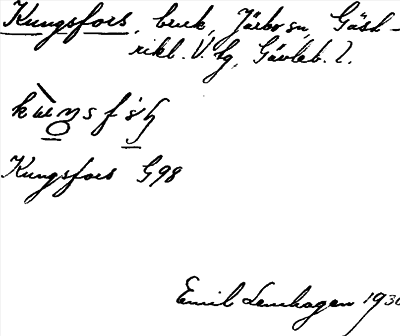 Kungsfors, bruk, Järbo sn, Gästrikl. V. hg, Gävleb. l.
Kungsfors G98
Emil Lenhagen 1930